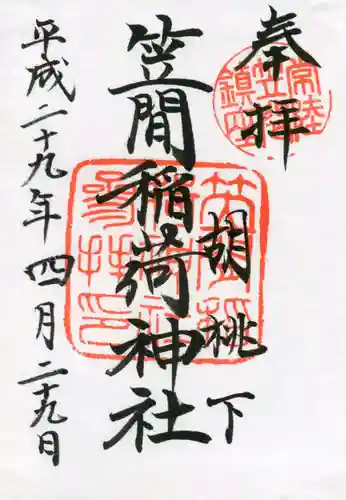 奉拝
常陸
笠間
鎮座
胡桃下
笠間稲荷神社
平成二十九年四月二十九日